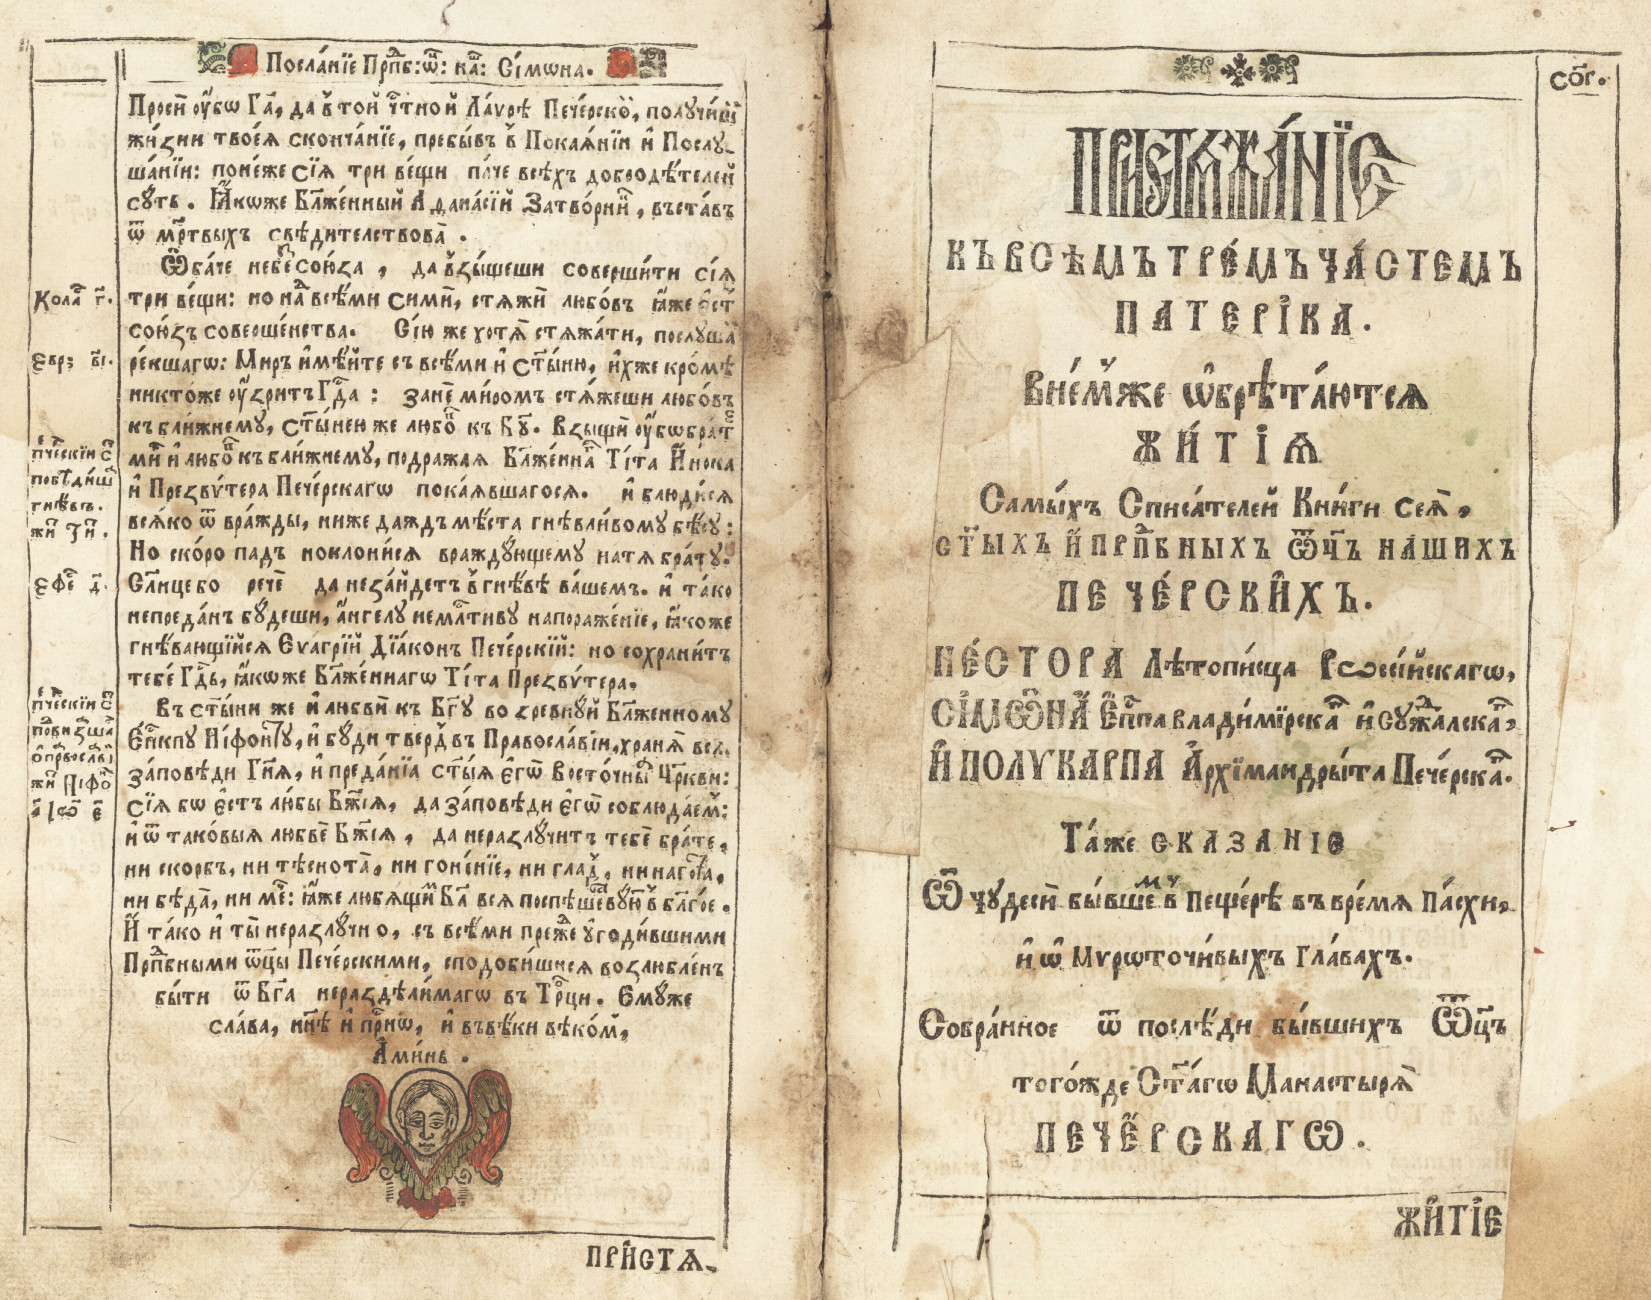 Посла́нїе Прп҃б: ѿ: на́: Сі́мѡна.
Проси̑ ᲂу҆́бѡ Га҃, да в̾ той чⷭ҇тной Ла́ѵрѣ Пече́рско̑, получи́ши
жи́зни твоея̀ сконча́нїе, пребы́въ в̾ Покая́нїи и҆ Послу-
ша́нїи: поне́же сїя̀ три ве́щи па́че всѣ́хъ добродѣ́телей
сꙋ́ть. Ꙗ҆́коже Бл҃же́нный Аѳана́сїй Затво́рни̑, въста́въ
ѿ мр҃твыхъ свѣ́дителствова̀.
Ѻ҆ба́че не без̾ сою́за, да в̾зы́щеши соверши́ти сїѧ̀
три ве́щи: но на́д всѣ́ми си́ми, стѧжи̑ любо́въ ꙗ҆́же є҆́ст
сою́зъ соверше́нства. Сїю́ же хотѧ̀ стѧжа́ти, послꙋ́ша
ре́кшагѡ: Ми́ръ и҆мѣ́йте съ всѣ́ми и҆ ст҃ы́ню, и҆́хже кро́мѣ
никто́же ᲂу҆́зритъ Гд҇а: занѐ ми́ромъ стѧ́жеши любо́въ
къ бли́жнему, ст҃ы́нею же любо́в къ Бг҃ꙋ. Взыщи̑ ᲂу҆́бѡ брат
ми̑ и҆ любо́в къ бли́жнему, подража́я Бл҃же́нна Ті́та И҆́нока
и҆ Презвѵ́тера Пече́рскагѡ пока́явшагося. и҆ блюди́сѧ
всѧ́ко ѿ вра́жды, ниже да́ждъ мѣ́ста гнѣвли́вому бѣ́су:
Но ско́ро па́дъ поклони́ся враждꙋ́ющему на тѧ̀ бра́ту.
Сл҃нце бо рече̑ да не за́йдетъ в̾ гнѣ́вѣ ва́шемъ. и҆ та́ко
непреда́нъ бꙋ́деши, а҆́нгелу немлⷭ҇тиву на пораже́нїе, ꙗ҆́коже
гнѣ́вающїйся Єѵа́грїй Дїа́конъ Пече́рскїй: но сохрани́тъ
тебѐ Гд҇ь, ꙗ҆́коже Бл҃же́ннагѡ Ті́та Презвѵ́тера.
Въ ст҃ы́ни же и҆ любви̑ къ Бг҃ꙋ возревнꙋ́й Бл҃же́нному
Єп҃кпу Ни́фонту, и҆ бꙋ́ди тве́рд въ Правосла́вїи, хранѧ̀ всѧ̀
за́повѣди Гн҃ѧ, и҆ преда́нїа ст҃ы́я є҆гѡ̀ Восто́чны Цр҃кви:
Сїѧ̀ бо є҆́стъ любы̀ Бж҃їѧ, да за́повѣди є҆гѡ̀ соблюда́ем:
и҆ ѿ тако́выя любвѐ Бж҃їѧ, да не разлꙋ́читъ тебѐ бра́те,
ни ско́рбъ, ни тѣснота̀, ни гоне́нїе, ни гла́д, ни нагота̀,
ни бѣда̀, ни ме́ч: ꙗ҆́же лю́бящи Бг҃а вся поспѣшевꙋ́ю в̾ бл҃го́е.
И҆ та́ко и҆ ты̀ неразлꙋ́чно, съ всѣ́ми пре́жде ᲂу҆годи́вшими
Прп҃бными ѿц҃ы́ Пече́рскими, сподоби́шися возлюбле́нъ
бы́ти ѿ Бг҃а неразд̾ѣли́магѡ въ Трⷪ҇ци. Ємꙋ́же
сла́ва, нн҃ѣ и҆ при́снѡ, и҆ въ вѣ́ки вѣко́м,
Ами́нь.
Кола́с г҃.
Євр: в҃і.
пче́рскїи
побѣди́ш
гнѣ́въ.
Єфе́ д҃.
пче́рскїи
ПРИ҆СТѦ-
со҃г.
ПРИСТѦЖА́НЇЄ
КЪ ВСѢ́МЪ ТРЕ́МЪ ЧА́СТЕМЪ
ПАТЕРІКА.
В не́мже ѡ҆брѣта́ются
ЖИ́ТІѦ
Самы́хъ Списа́телей Кни́ги сеѧ̀,
ст҃ы́хъ и҆ прп҃бныхъ ѿц҃ъ на́шихъ
ПЕЧЕ́РСКИХЪ.
НЕ́СТОРА Лѣтопи́сца Рѡссі́йскагѡ,
СІ́МѠНА Єп҃па Влади́мїрска и҆ Сꙋ́ждалска,
И҆ ПОЛѴКАРПА А҆рхїмандры́та Пече́рска.
Та́же СКАЗАНІЄ
Ѡ҆ чꙋдеси̑ бы́вшем в̾ Пеще́рѣ въ вре́мя Па́схи,
и҆ ѡ҆ Мѵрѡточи́выхъ Гла́вахъ.
Собра́нное ѿ послѣ́ди бы́вшихъ Ѿц҃ъ
того́жде Ст҃а́гѡ Манастырѧ̀
ПЕЧЕ́РСКАГѠ.
ЖИ҆ТІЄ